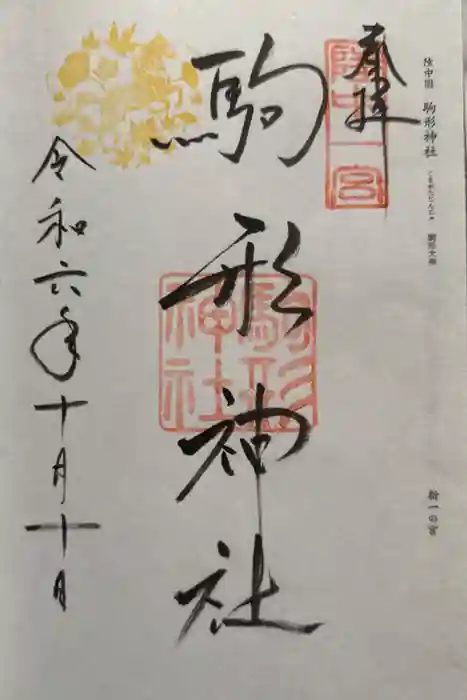 陸中国 駒形神社 こまがたじんじゃ 駒形大神
新一の宮
奉拝
陸中一宮
駒形神社
駒形神社
令和六年十月十日